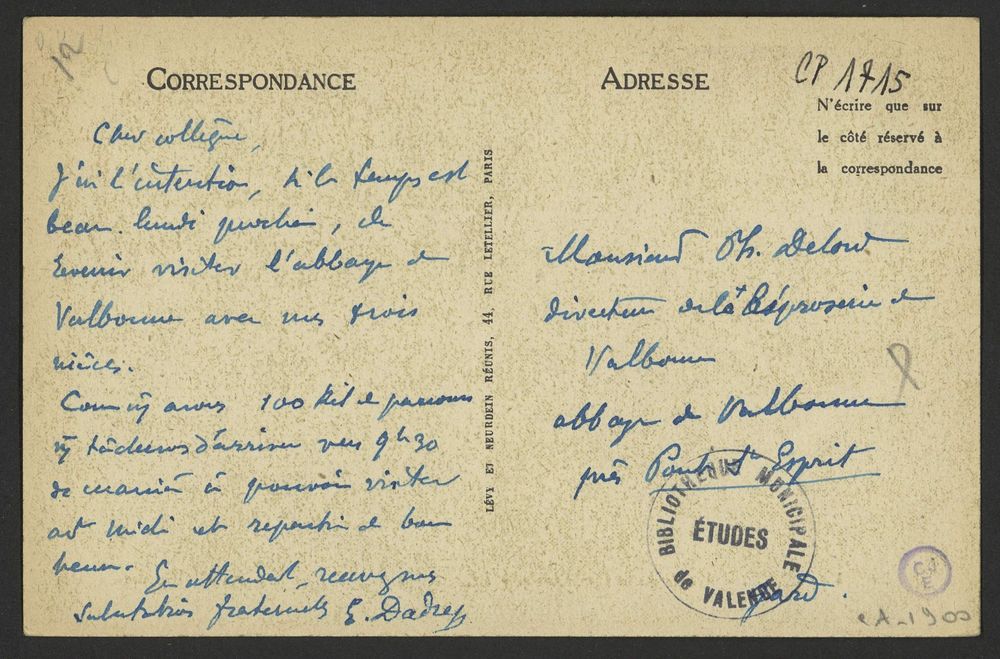 12
CORRESPONDANCE
Cher collègue,
J'ai l'intention, si le temps est
beau lundi prochain, de
venir visiter l'abbaye de
Valbonne avec mes trois
nièces.
Comme ns avons 100 kil de parcours
ns tâcherons d'arriver vers 9h30
de manière à pouvoir visiter
avt midi et repartir de bonne
heure.
En attendant, recevez mes
salutations fraternelles E.
LÉVY ET NEURDEIN RÉUNIS, 44, RUE LETELLIER, PARIS
ADRESSE
CP 1715
N'écrire que sur
le côté réservé à
la correspondance
Monsieur Ph. Delord
directeur de la Léproserie de
Valbonne
abbaye de Valbonne
près Pont St Esprit
Gard.
BIBLIOTHÈQUE MUNICIPALE
ÉTUDES
de VALENCE